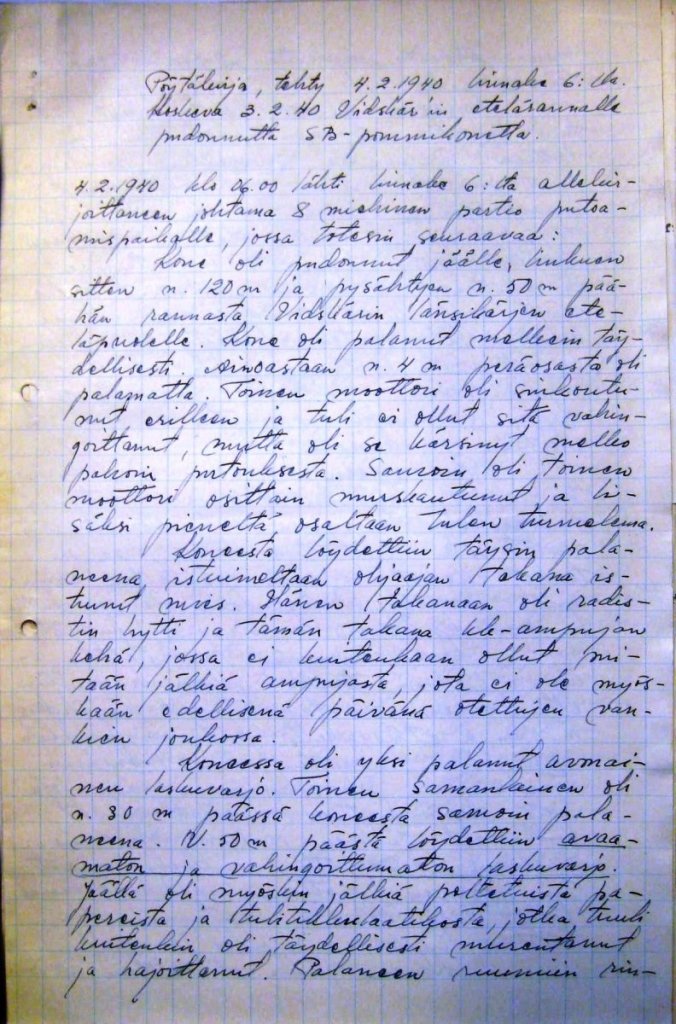 Pöytäkirja, tehty 4.2.1940 linnake 6:lla.
Koskeva 3.2.40 Vidskär'in etelärannalle
pudonnutta SB-pommikonetta.
4.2.1940 klo 06.00 lähti linnake 6:lta allekir-
joittaneen johtama 8 miehinen partio putoa-
mispaikalle, jossa totesin seuraavaa:
Kone oli pudonnut jäälle, liukuen
sitten n. 120 m ja pysähtyen n. 50 m pää-
hän rannasta Vidskärin länsikärjen ete-
läpuolelle. Kone oli palanut melkein täy-
dellisesti. Ainoastaan n. 4 m peräosasta oli
palamatta. Toinen moottori oli sinkoutu-
nut erilleen ja tuli ei ollut sitä vahin-
goittanut, mutta oli se kärsinyt melko
pahoin putouksesta. Samoin oli toinen
moottori osittain murskautunut ja li-
säksi pieneltä osaltaan tulen turmelema.
Koneesta löydettiin täysin pala-
neena, istuimeltaan ohjaajan takana is-
tunut mies. Hänen takanaan oli radis-
tin hytti ja tämän takana kk-ampujan
kehä, jossa ei kuitenkaan ollut mi-
tään jälkiä ampujasta, jota ei ole myös-
kään edellisenä päivänä otettujen van-
kien joukossa.
Koneessa oli yksi palanut avonai-
nen laskuvarjo. Toinen samanlainen oli
n. 30 m päässä koneesta samoin pala-
neena. N. 50 m päästä löydettiin avaa-
maton ja vahingoittumaton laskuvarjo.
Jäällä oli myöskin jälkiä poltetuista pa-
pereista ja tulitikkulaatikosta, jotka tuuli
kuitenkin oli täydellisesti murentanut
ja hajoittanut. Palaneen ruumiin rin-